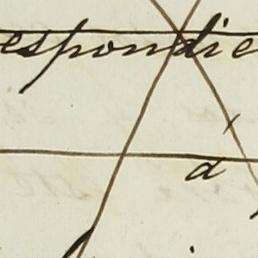 espondie
á